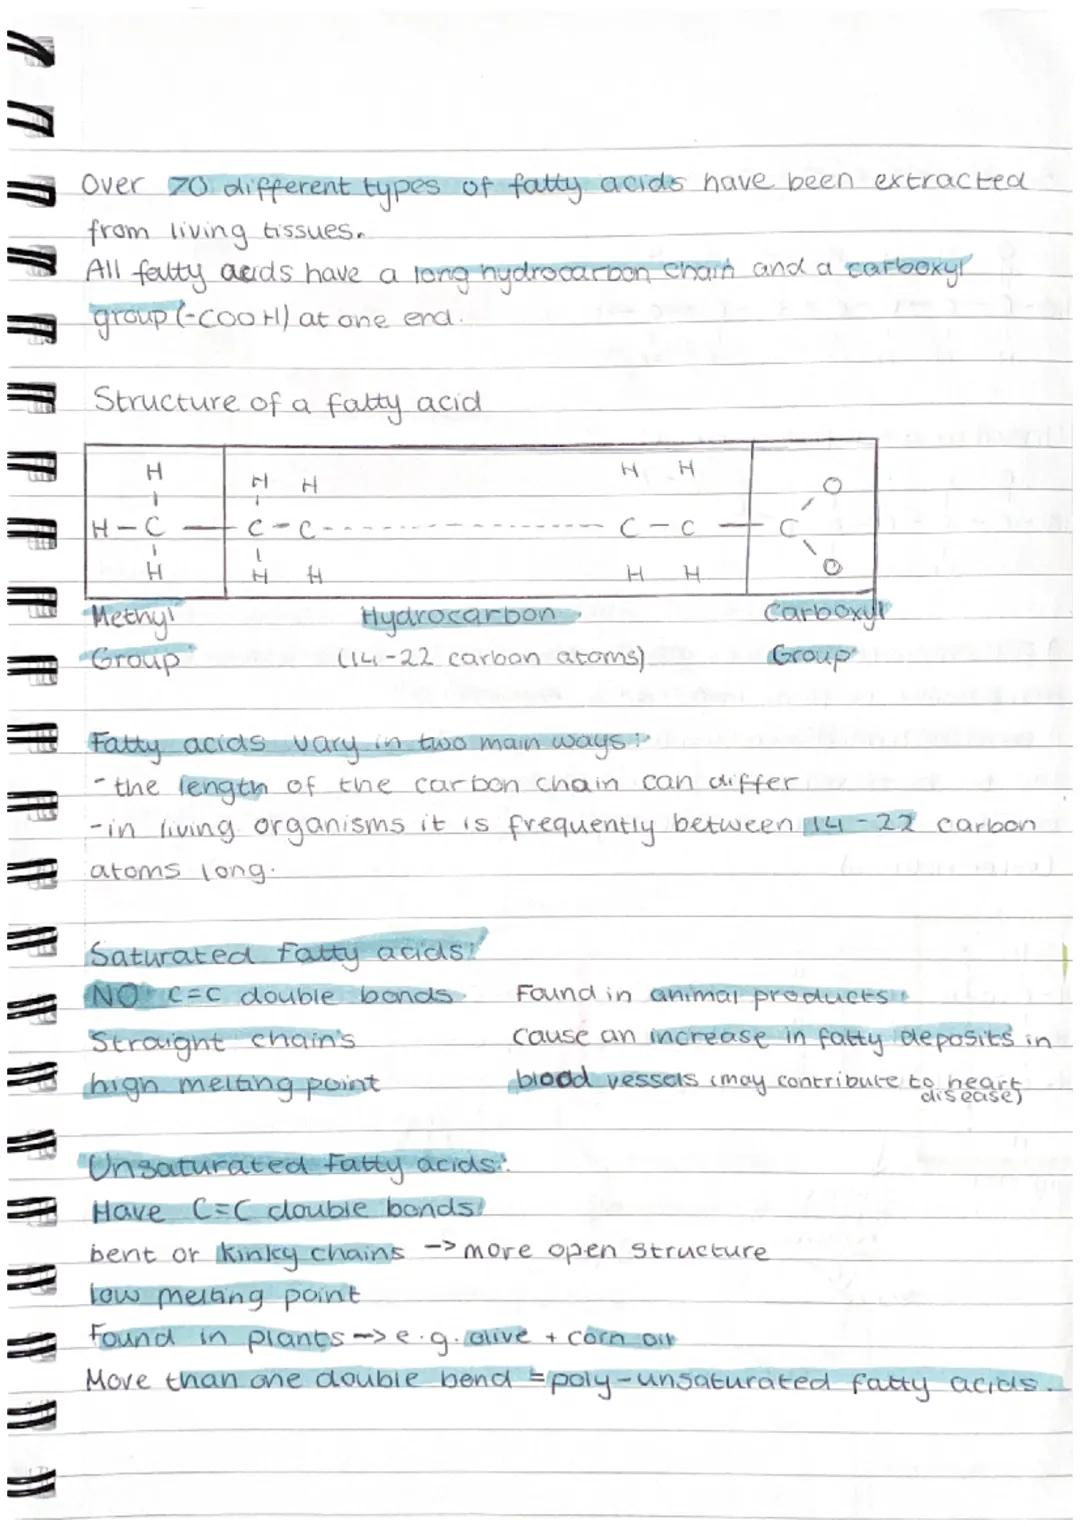 Over 70 different types of fatty acids have been extracted
from living tissues.
All fatty acids have a long hydrocarbon chain and a carboxyl
group (-COOH) at one end.
Structure of a fatty acid
H H H H H O
H - C - C - C - - - - - - - - - - - - C - C - C
H H H H H O
Methyl Hydrocarbon Carboxyl
Group (14-22 carbon atoms) Group
Fatty acids vary in two main ways:
- the length of the carbon chain can differ
- in living organisms it is frequently between 14-22 carbon
atoms long.
Saturated fatty acids:
NO C=C double bonds Found in animal products
Straight chain's cause an increase in fatty deposits in
high melting point blood vessels (may contribute to heart
disease)
Unsaturated fatty acids:
Have C=C double bonds
bent or kinky chains -> more open structure
low melting point
Found in plants -> e.g. olive + corn oil
More than one double bond = poly-unsaturated fatty acids.